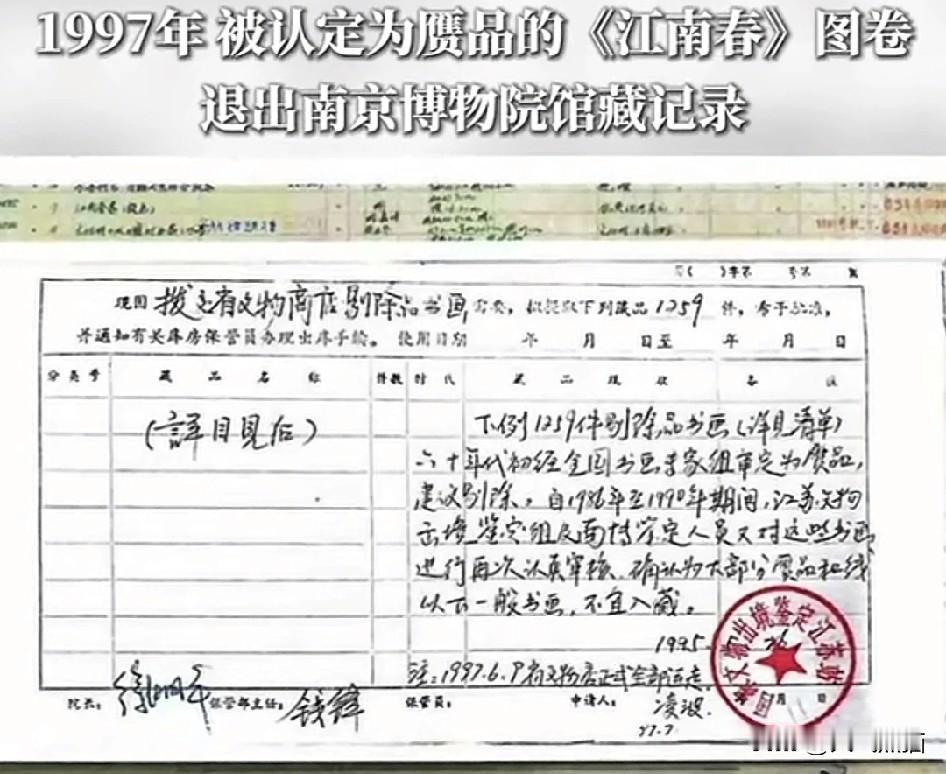 1997年 被认定为赝品的《江南春》图卷
退出南京博物院馆藏记录
现因 拨交省文物商店剔除品书画 需要，拟提取下列藏品1259件，希予批准，
并通知有关库房保管员办理出库手续。 使用日期 年 月 日至 年 月 日
分类号 藏品名称 件数 时代 藏品现状 备注
(详目见后)
下列1259件剔除品书画(详见清单)
六十年代初经全国书画专家组审定为赝品，
建议剔除。自1986年至1990年期间，江苏文物
出境鉴定组及南博鉴定人员又对这些书画
进行再次认真审核，确认为大部分赝品和线
以下一般书画，不宜入藏。
1995
注：1997.6.9省文物店正式全部运走
院长： 徐湖平 保管部主任： 钱锋 保管员： 申请人： 凌波
97.7
文物出境鉴定江苏站